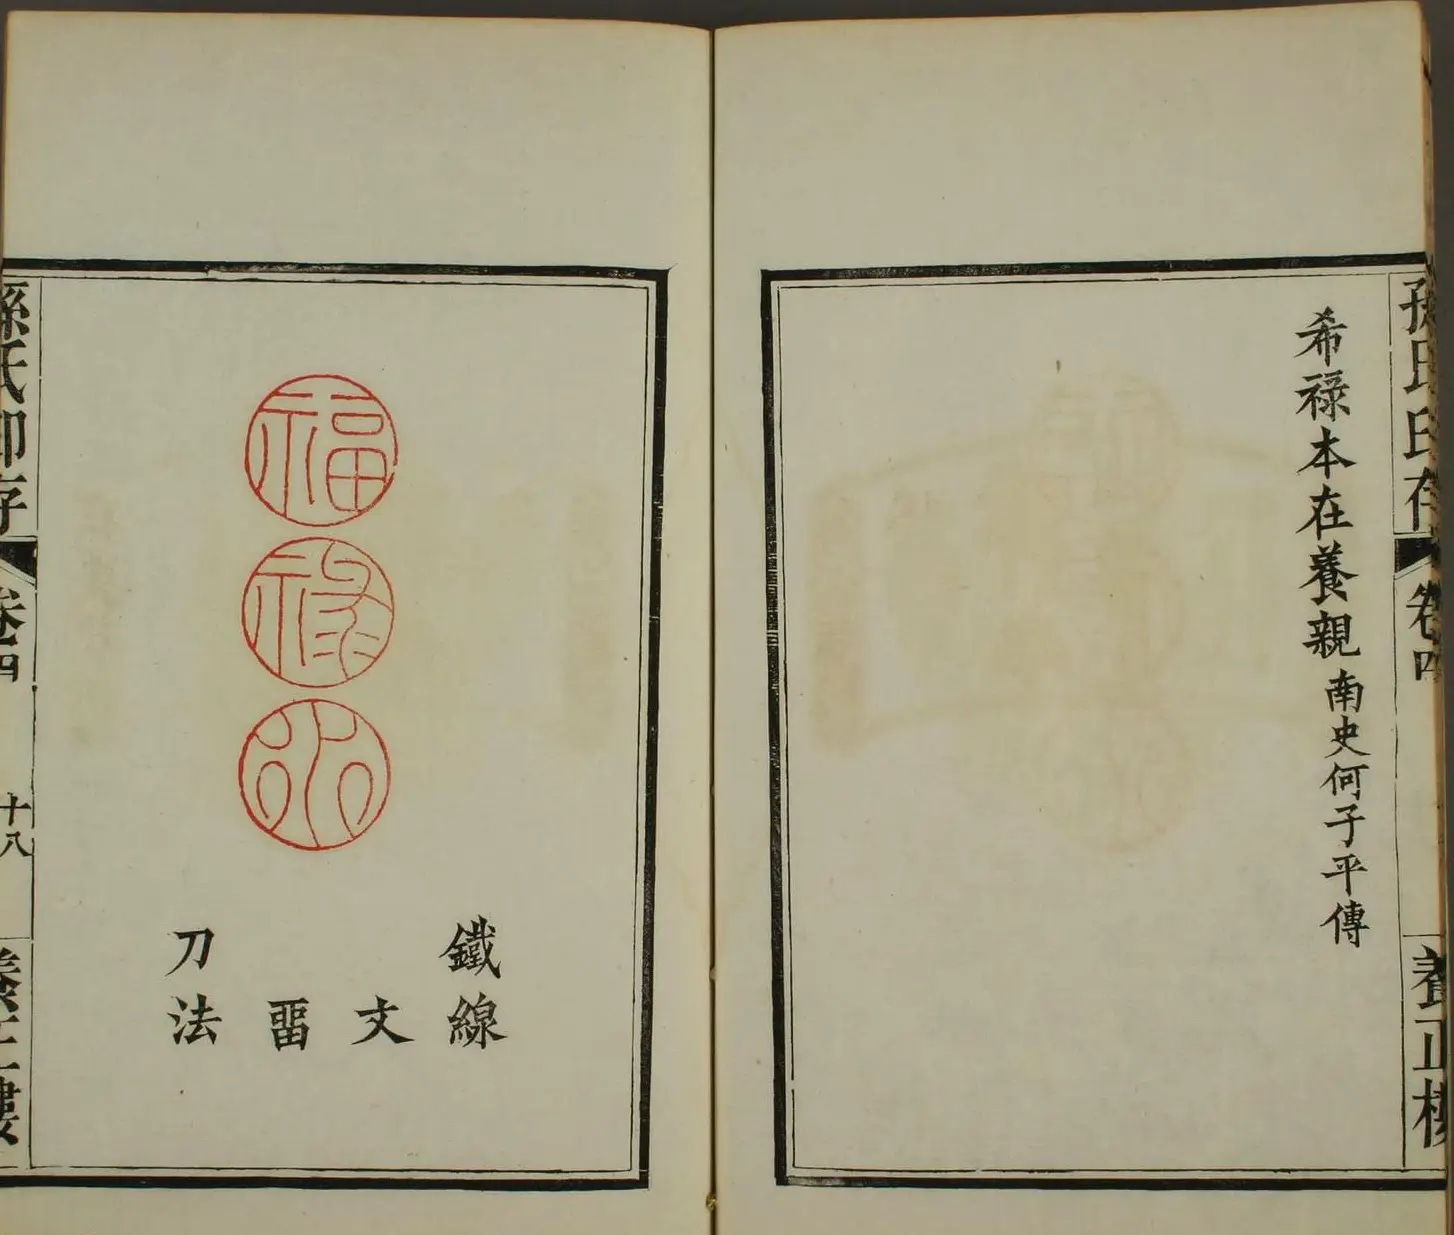 孫氏印存
卷四
養正樓
希祿本在養親南史何子平傳
福
祿
鐵線
文
畱
刀法
孫氏印存
卷四
十八
養正樓